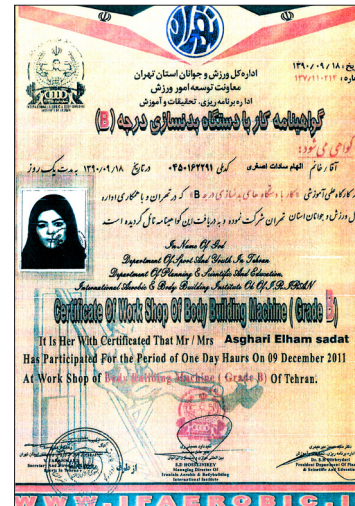 اداره کل ورزش و جوانان استان تهران
معاونت توسعه امور ورزش
اداره برنامه ریزی، تحقیقات و آموزش
تاریخ: ۱۳۹۰/۰۹/۱۸
گواهینامه کار با دستگاه بدنسازی درجه (B)
گواهی می شود:
آقا / خانم الهام سادات اصغری کد ملی ۰۴۵۰۱۶۲۲۹۱ در تاریخ ۱۳۹۰/۰۹/۱۸ به مدت یک روز
در کارگاه علمی آموزشی «کار با دستگاه های بدنسازی درجه B» که در تهران و با همکاری اداره
کل ورزش و جوانان استان تهران شرکت نموده و به دریافت این گواهینامه نائل گردیده است.
In Name Of God
Department Of Sport And Youth In Tehran
Department Of Planning & Scientific And Education,
International Aerobic & Body Building Institute Of I.R.IRAN
Certificate Of Work Shop Of Body Building Machine ( Grade B)
It Is Her With Certificated That Mr / Mrs Asghari Elham sadat
Has Participated For the Period of One Day Haurs On 09 December 2011
At Work Shop of Body Building Machine ( Grade B) Of Tehran.
Managing Director Of
Iranian Aerobic & Bodybuilding
International Institute
WWW.IFAEROBIC.I